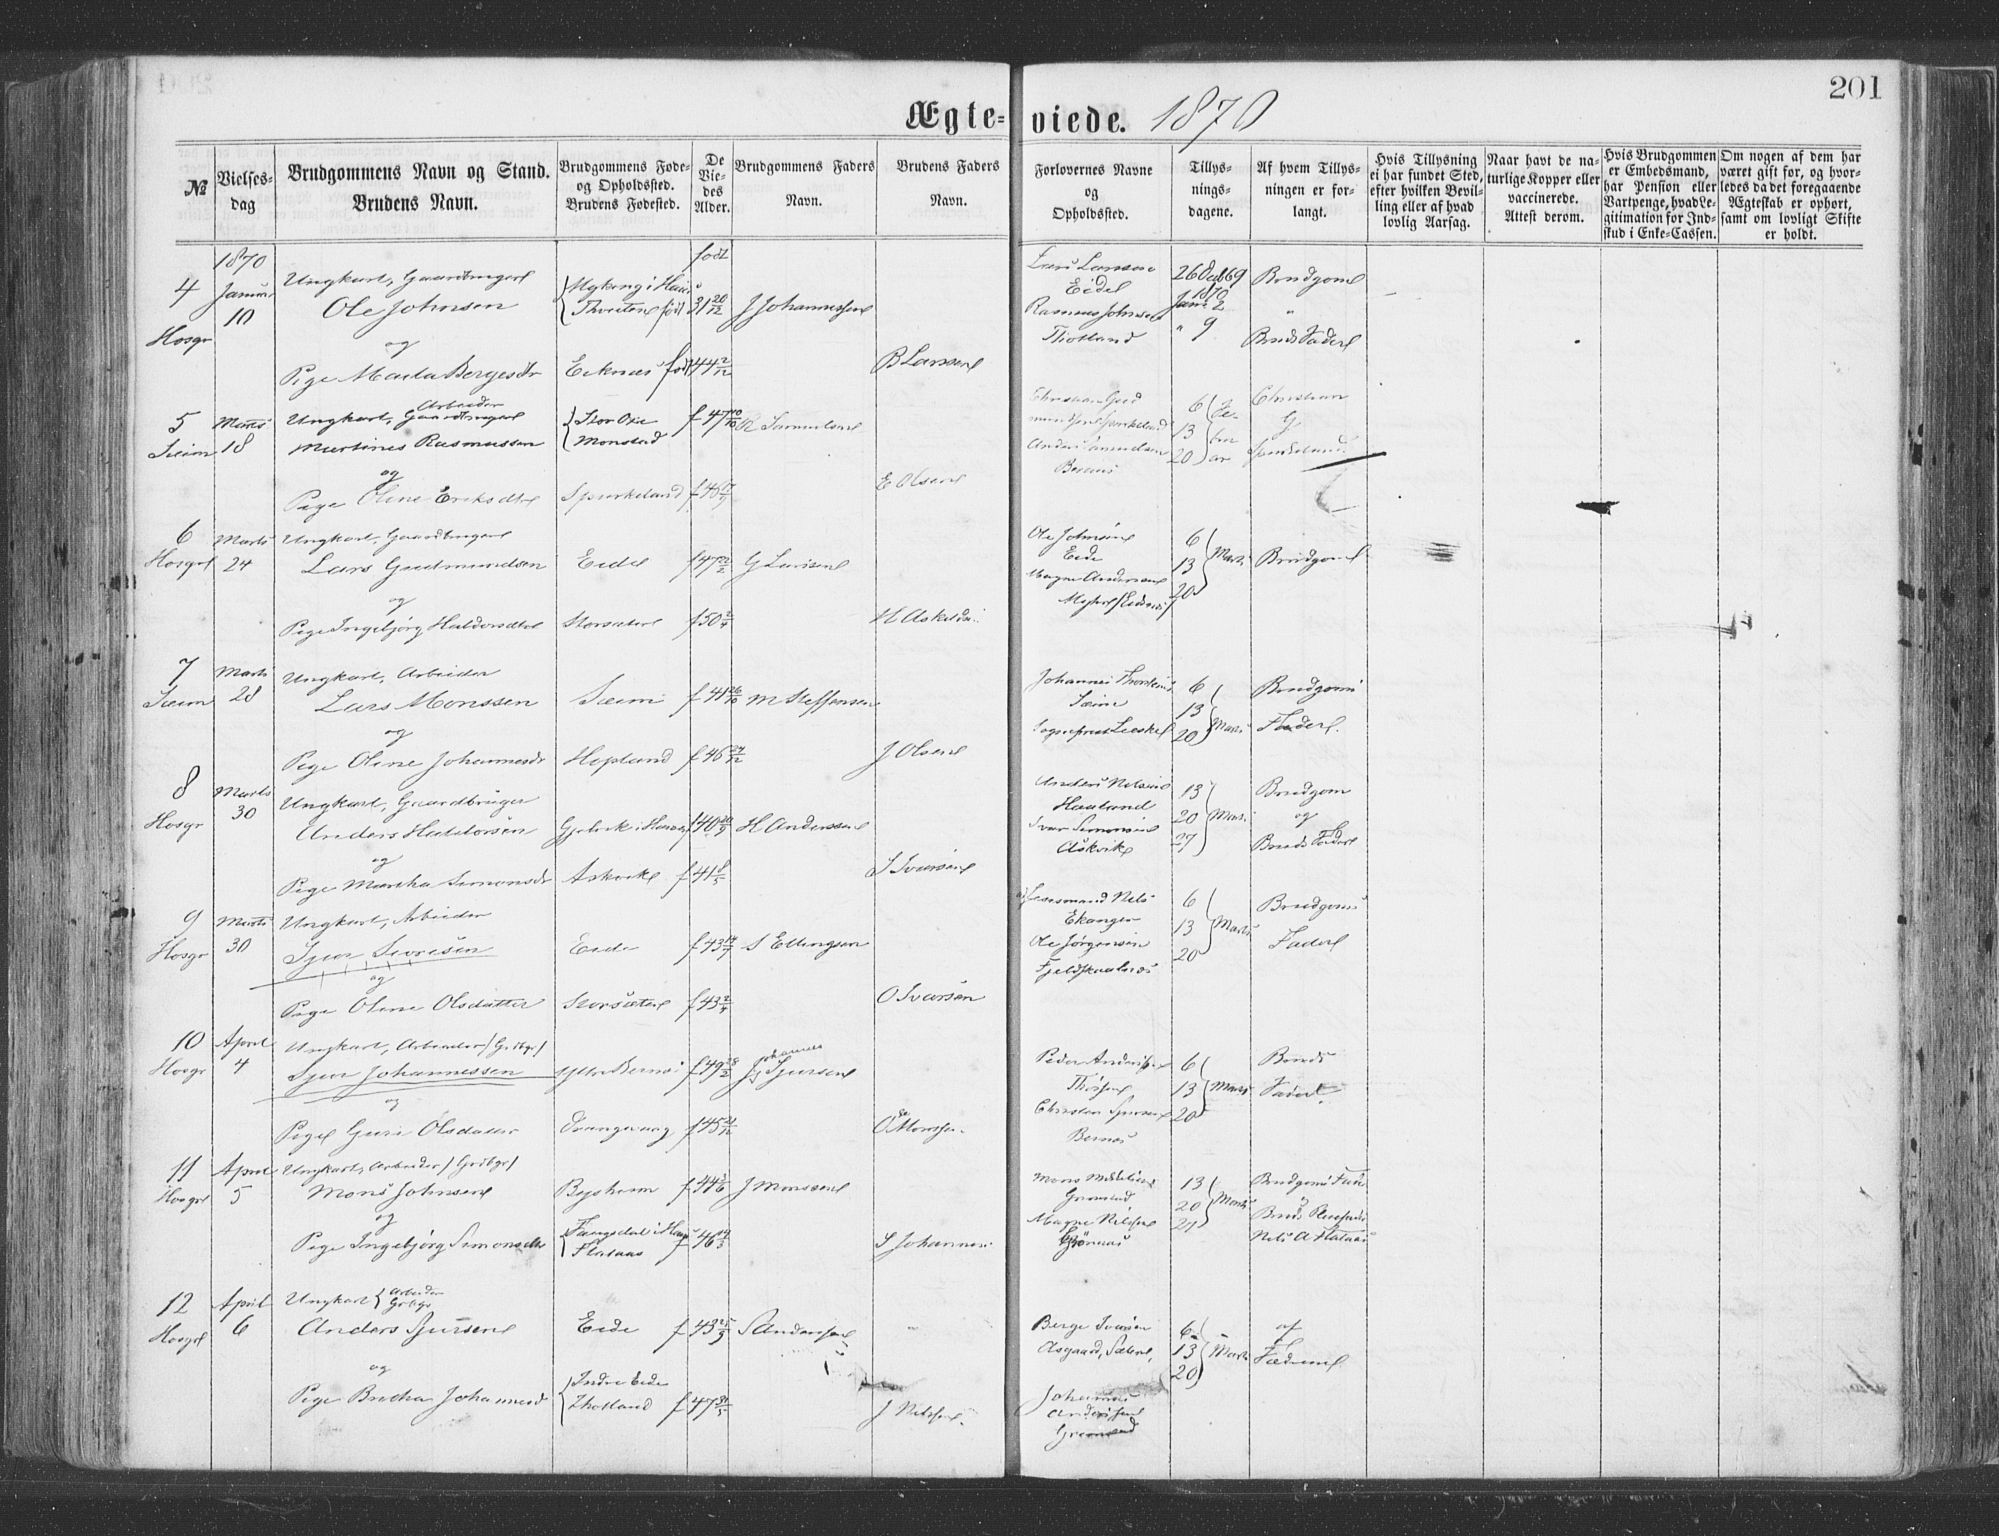 201
Ægteviede. 1870
№
Vielses-
dag
Brudgommens Navn og Stand.
Brudens Navn.
Brudgommens Føde-
og Opholdssted.
Brudens Fødested.
De
Vie-
des
Alder.
Brudgommens Faders
Navn.
Brudens Faders
Navn.
Forlovernes Navne
og
Opholdssted.
Tillys-
nings-
dagene.
Af hvem Tillys-
ningen er for-
langt.
Hvis Tillysning
ei har fundet Sted,
efter hvilken Bevil-
ling eller af hvad
lovlig Aarsag.
Naar havt de na-
turlige Kopper eller
vaccinerede.
Attest derom.
Hvis Brudgommen
er Embedsmand,
har Pension eller
Vartpenge, hvad Le-
gitimation for Ind-
skud i Enke-Cassen.
Om nogen af dem har
været gift før, og hvor-
ledes da det foregaaende
Ægteskab er ophørt,
samt om lovligt Skifte
er holdt.
4 Hosgr
1870 Januar 10
Ungkarl, Gaardbruger
Ole Johnsen
og
Pige Marta Bergesdr
Eeknæs
født 31 20/12
født 44 2/12
J Johannessen
B Larsen
Lars Larsen
Eide
Rasmus Johnsen
26 Decb 69
1870
Janr 2
" 9
Brudgom
"
Bruds Fader
5 Seim
Marts 18
Ungkarl, Arbeider Gaardbruger
Martines Rasmussen
og
Pige Oline Eriksdtr
Monstad
Spurkeland
f 47 10/10
R Samuelsen
E Olsen
Anders Samuelsen
6
13
20
Christian
G
Spurkeland
6 Hosgr
Marts 24
Ungkarl, Gaardbruger
Lars Gudmundsen
og
Pige Ingebjørg Haldorsdtr
Eide
Storsæter
f 47 22/2
f 50 2/4
G Larsen
H Askelds
Ole Johnsen
Eide
Magne Andersen
6
13
20
Marts
Brudgom
7 Seim
Marts 28
Ungkarl, Arbeider
Lars Monssen
og
Pige Oline Johannesdr
Seim
Hopland
f 41 26/10
f 46 27/12
M Steffensen
J Olsen
Johannes Thorsteins
Seim
6
13
20
Marts
Brudgoms
Fader
8 Hosgr
Marts 30
Ungkarl, Gaardbruger
Anders Haldorsen
og
Pige Martha Simonsdr
Askvike
f 40 20/9
f 41 8/5
H Anderssen
S Ivarsen
Anders Nilsen
Haaland
Ivar Simonsen
Askvike
13
20
27
Marts
Brudgom
og
Bruds Fader
9 Hosgr
Marts 30
Ungkarl, Arbeider
Sjur Sjursen
og
Pige Oline Olsdatter
Eide
Storsæter
f 43 14/7
f 43 2/4
S Ellingsen
O Ivarsen
Nils
Ekanger
Ole Jørgensen
6
13
20
Marts
Brudgoms
Fader
10 Hosgr
April 4
Ungkarl, Arbeider / Grdbgr /
Sjur Johannessen
og
Pige Guri Olsdatter
f 49 28/2
f 45 21/12
Johannes
J Sjursen
O Monssen
Peder Anderssen
Christen Sjursen
Bernæs
6
13
20
Marts
Bruds
Fader
11 Hosgr
April 5
Ungkarl, Arbeider / Grdbgr /
Mons Johnsen
og
Pige Ingebjørg Simonsdtr
Bysheim
Flataas
f 44 3/6
f 46 14/3
J Monssen
S Johannes
Magne Nilssen
13
20
27
Marts
Brudgoms Fader
Nils A Flataas
12 Hosgr
April 6
Ungkarl { Arbeider
Grdbgr
Anders Sjursen
og
Pige Brita Johannesd
Eide
Indre Eide
f 43 25/3
f 47 31/5
S Anderssen
J Nilssen
Berge Ivarsen
Asgaard, Sæter
Johannes
Anderssen
6
13
20
Marts
af
Fædrene